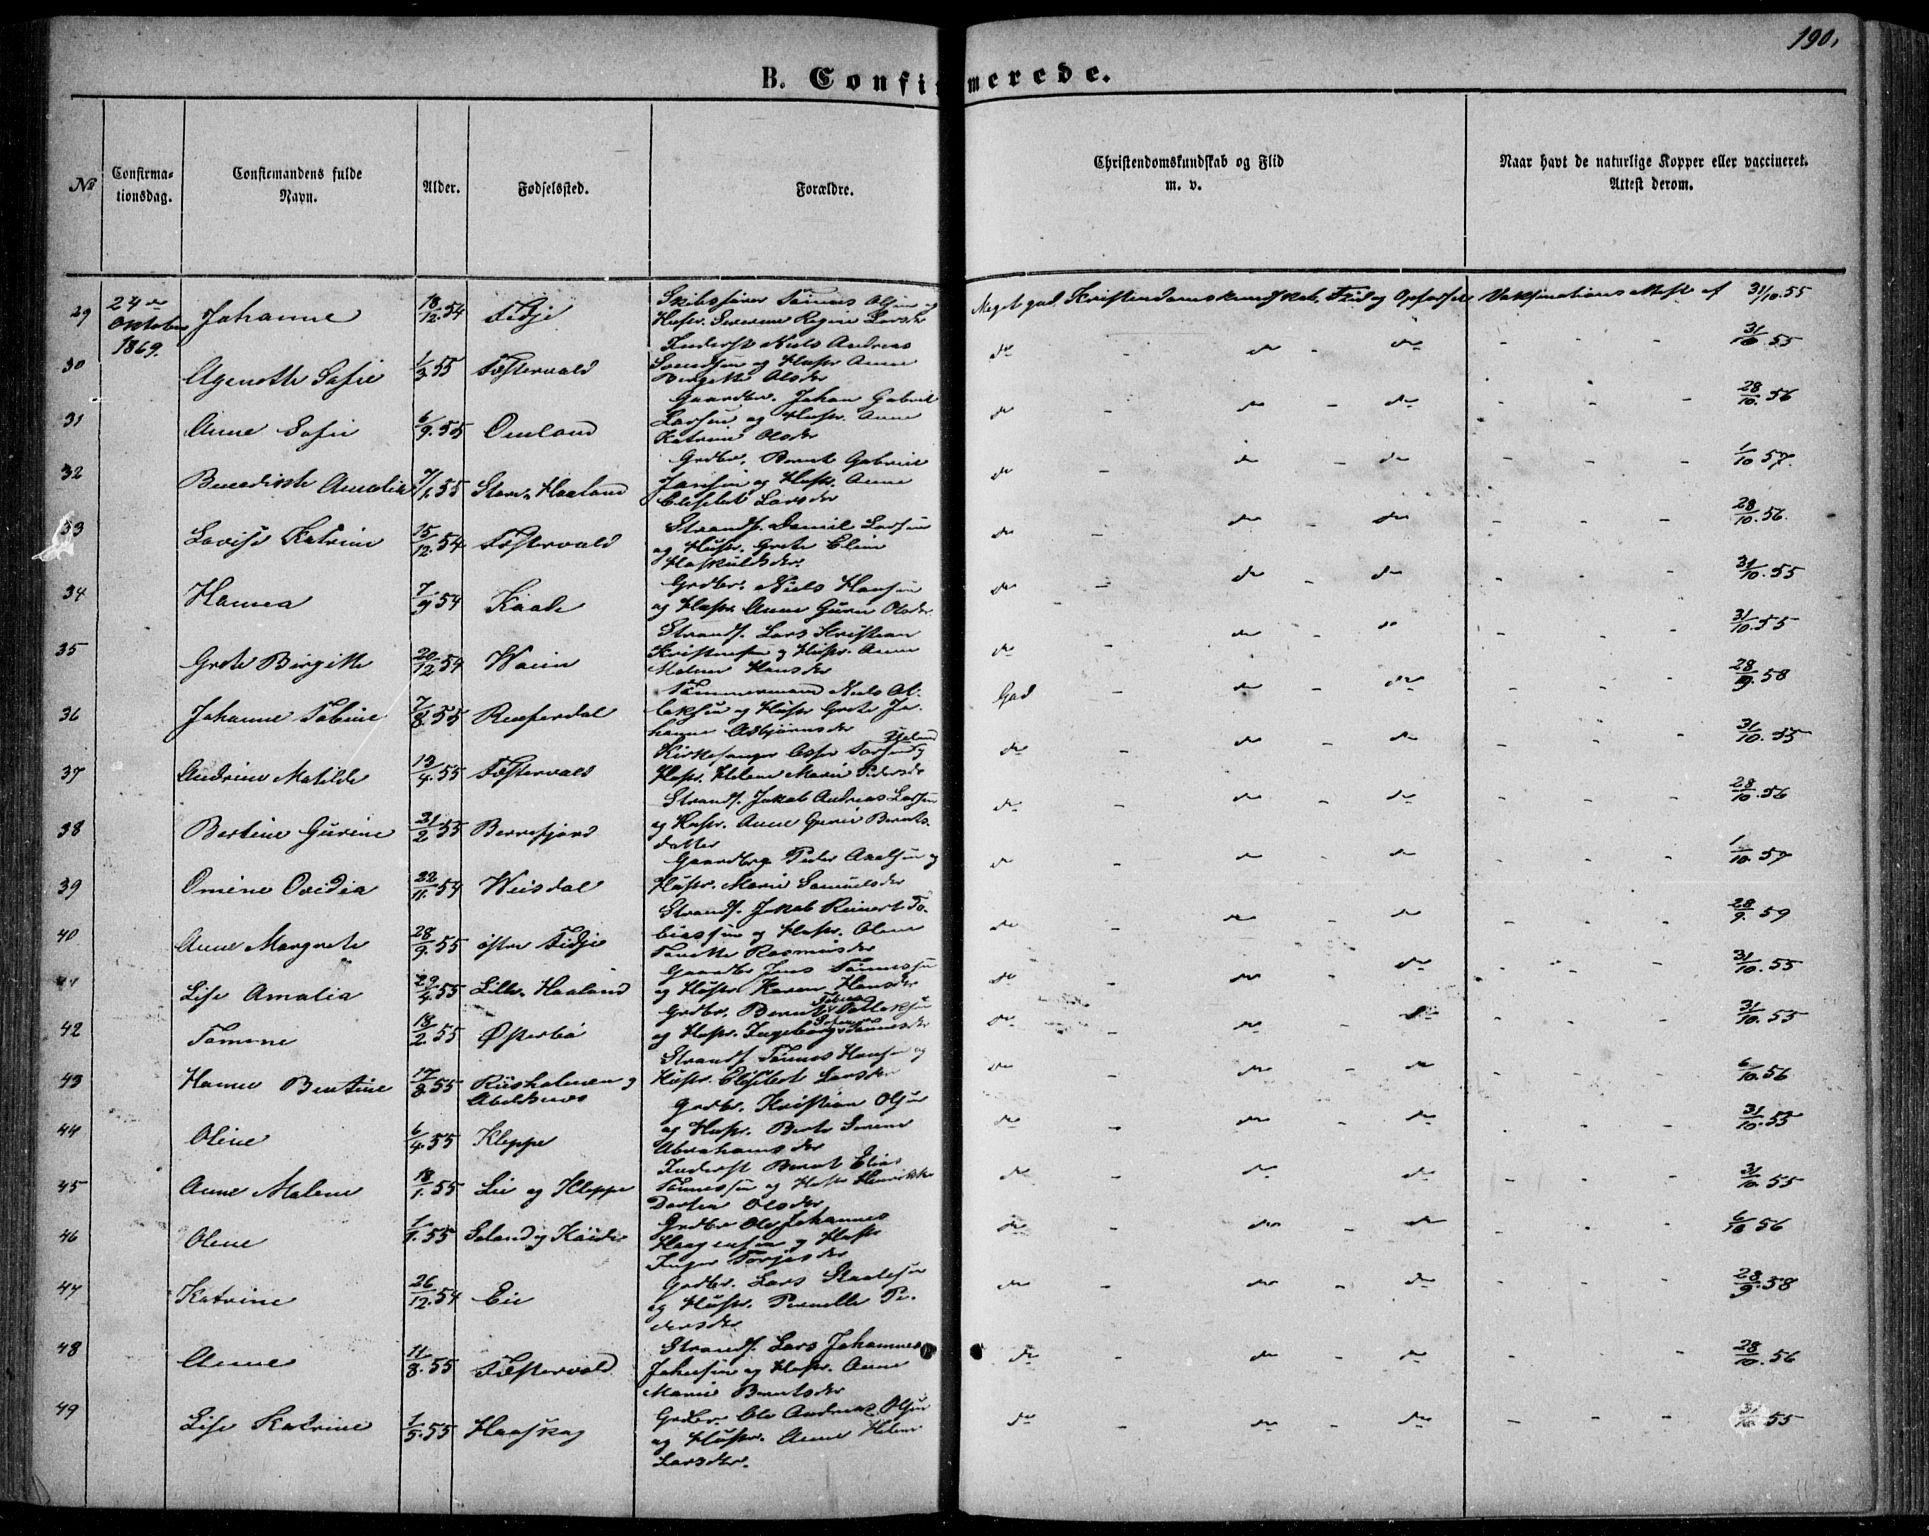 190.
B. Confirmerede.
No
Confirma-
tionsdag.
Confirmandens fulde
Navn.
Alder.
Fødselssted.
Forældre.
Christendomskundskab og Flid
m. v.
Naar havt de naturlige Kopper eller vaccineret.
Attest derom.
29 24de Oktober 1869. Johanne 18/12.54 Fidje
Skibsfører Tønnes Olsen og
Hustr. Severine Regine Larsdr
Meget god Kristendomskundskab, Flid og Opførsel Vaksinationsattest af 31/10.55
30 Agenethe Sofie 1/3 55 Fæstervold
Inderst Niels Andreas
Svendsen og Hustr. Anne
Birgitte Olsdr
do - do - do - - - 31/10 55
31 Anne Sofie 6/9.55 Omland
Gaardbr. Johan Gabriel
Larsen og Hustr. Anne
Katrine Olsdr
do - do - do - - - 28/10.56
32 Benedikte Amalia 7/1 55 Store-Haaland
Grdbr. Bernt Gabriel
Jansen og Hustr. Anne
Elisabet Larsdr
do - do - do - - - 1/10 57.
33 Lovise Katrine 15/12.54 Fæstervold
Strands. Daniel Larsen
og Hustr. Grete Eline
Haskuldsdr.
do - do - do - - - 28/10.56.
34 Hanna 7/9 54 Kaade
Grdbr. Niels Hansen
og Hustr. Anne Gurine Olsdr.
do - do - do - - - 31/10.55
35 Grete Birgitte 20/12 54
Strands. Lars Kristian
Kristensen og Hustr. Anne
Malene Hansdr
do - do - do - - - 31/10.55
36 Johanne Tobine 7/8.55
Tømmermand Niels Ol-
laksen og Hustr Grete Jo-
hanne Asbjørnsdr
God - do - do - - - 28/9.58
37 Andrine Matilde 13/4.55 Fæstervold
Kirkesanger Osse Torsen Ueland og
Hustr. Helene Marie Pedersdr
do - do - do - - - 31/10.55
38 Bertine Gurine 21/2 55 Berrefjord
Strands. Jakob Andreas Larsen
og Hustr. Anne Gurie Bernts-
datter
do - do - do - - - 28/10.56
39 Omine Ovidia 22/11.54 Veisdal
Gaardbr. Peder Axelsen og
Hustr. Marie Samuelsdr
do - do - do - - - 1/10.57
40 Anne Margrete 28/9.55 østre Fidje
Strands. Jakob Reinert To-
biassen og Hustr. Olene
Tonette Rasmusdr
do - do - do - - - 28/9.59
41 Lise Amalia 29/4.55 Lille-Haaland
Gaardbr Jens Tønnessen
og Hustr Karen Hansdr
do - do - do - - - 31/10.55
42 Tomine 18/2.55 Østerbø
Grdbr. Bernt Tobias Ollaksen
og Hustr. Ingeborg Tønnesdr
do - do - do - - - 31/10.55
43 Hanne Bertine 17/8.55 Riisholmen og
Abelsnes
Strands Tønnes Hansen og
Hustr. Elisabet Larsdr
do - do - do - - - 6/10.56
44 Oline 6/4.55 Kleppe
Grdbr. Kristian Olsen
og Hustr. Berte Serine
Abrahamsdr
do - do - do - - - 31/10.55
45 Anne Malene 18/1.55 Lie og Kleppe
Inderst Bernt Elias
Tønnessen og Hustr Henrikke
Dortea Olsdr
do - do - do - - - 31/10.55
46 Olene 1/1.55
Grdbr Ole Johannes
Haagensen og Hustr
Inger Torjesdr
do - do - do - - - 6/10 56
47 Katrine 26/12.54 Eie
Grdbr. Lars Staalesen
og Hustr. Pernille Pe-
dersdr
do - do - do - - - 28/9.58
48 Anne 11/8.55 Fæstervold
Strands. Lars Johannes
Johnsen og Hustr. Anne
Marie Berntsdr
do - do - do - - - 28/10.56
49 Lise Katrine 1/5.55 Haaskog
Grdbr. Ole Andreas Olsen
og Hustr. Anne Helene
Larsdtr.
do - do - do - - - 31/10 55